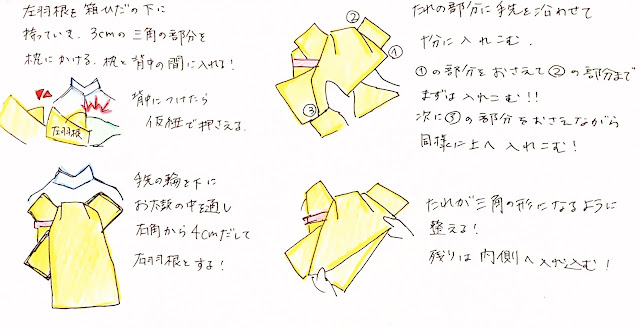 左羽根を箱ひだの下に
持っていき、3cmの三角の部分を
枕にかける。枕と背中の間に入れる!
左羽根
背中につけたら
仮紐で押さえる。
手先の輪を下に
お太鼓の中を通し
右角から4cmだして
右羽根とする!
②
①
③
たれの部分に手先を沿わせて
十分に入れこむ。
①の部分をおさえて②の部分まで
まずは入れこむ!!
次に③の部分をおさえながら
同様に上へ入れこむ!
たれが三角の形になるように
整える!
残りは内側へ入れ込む!